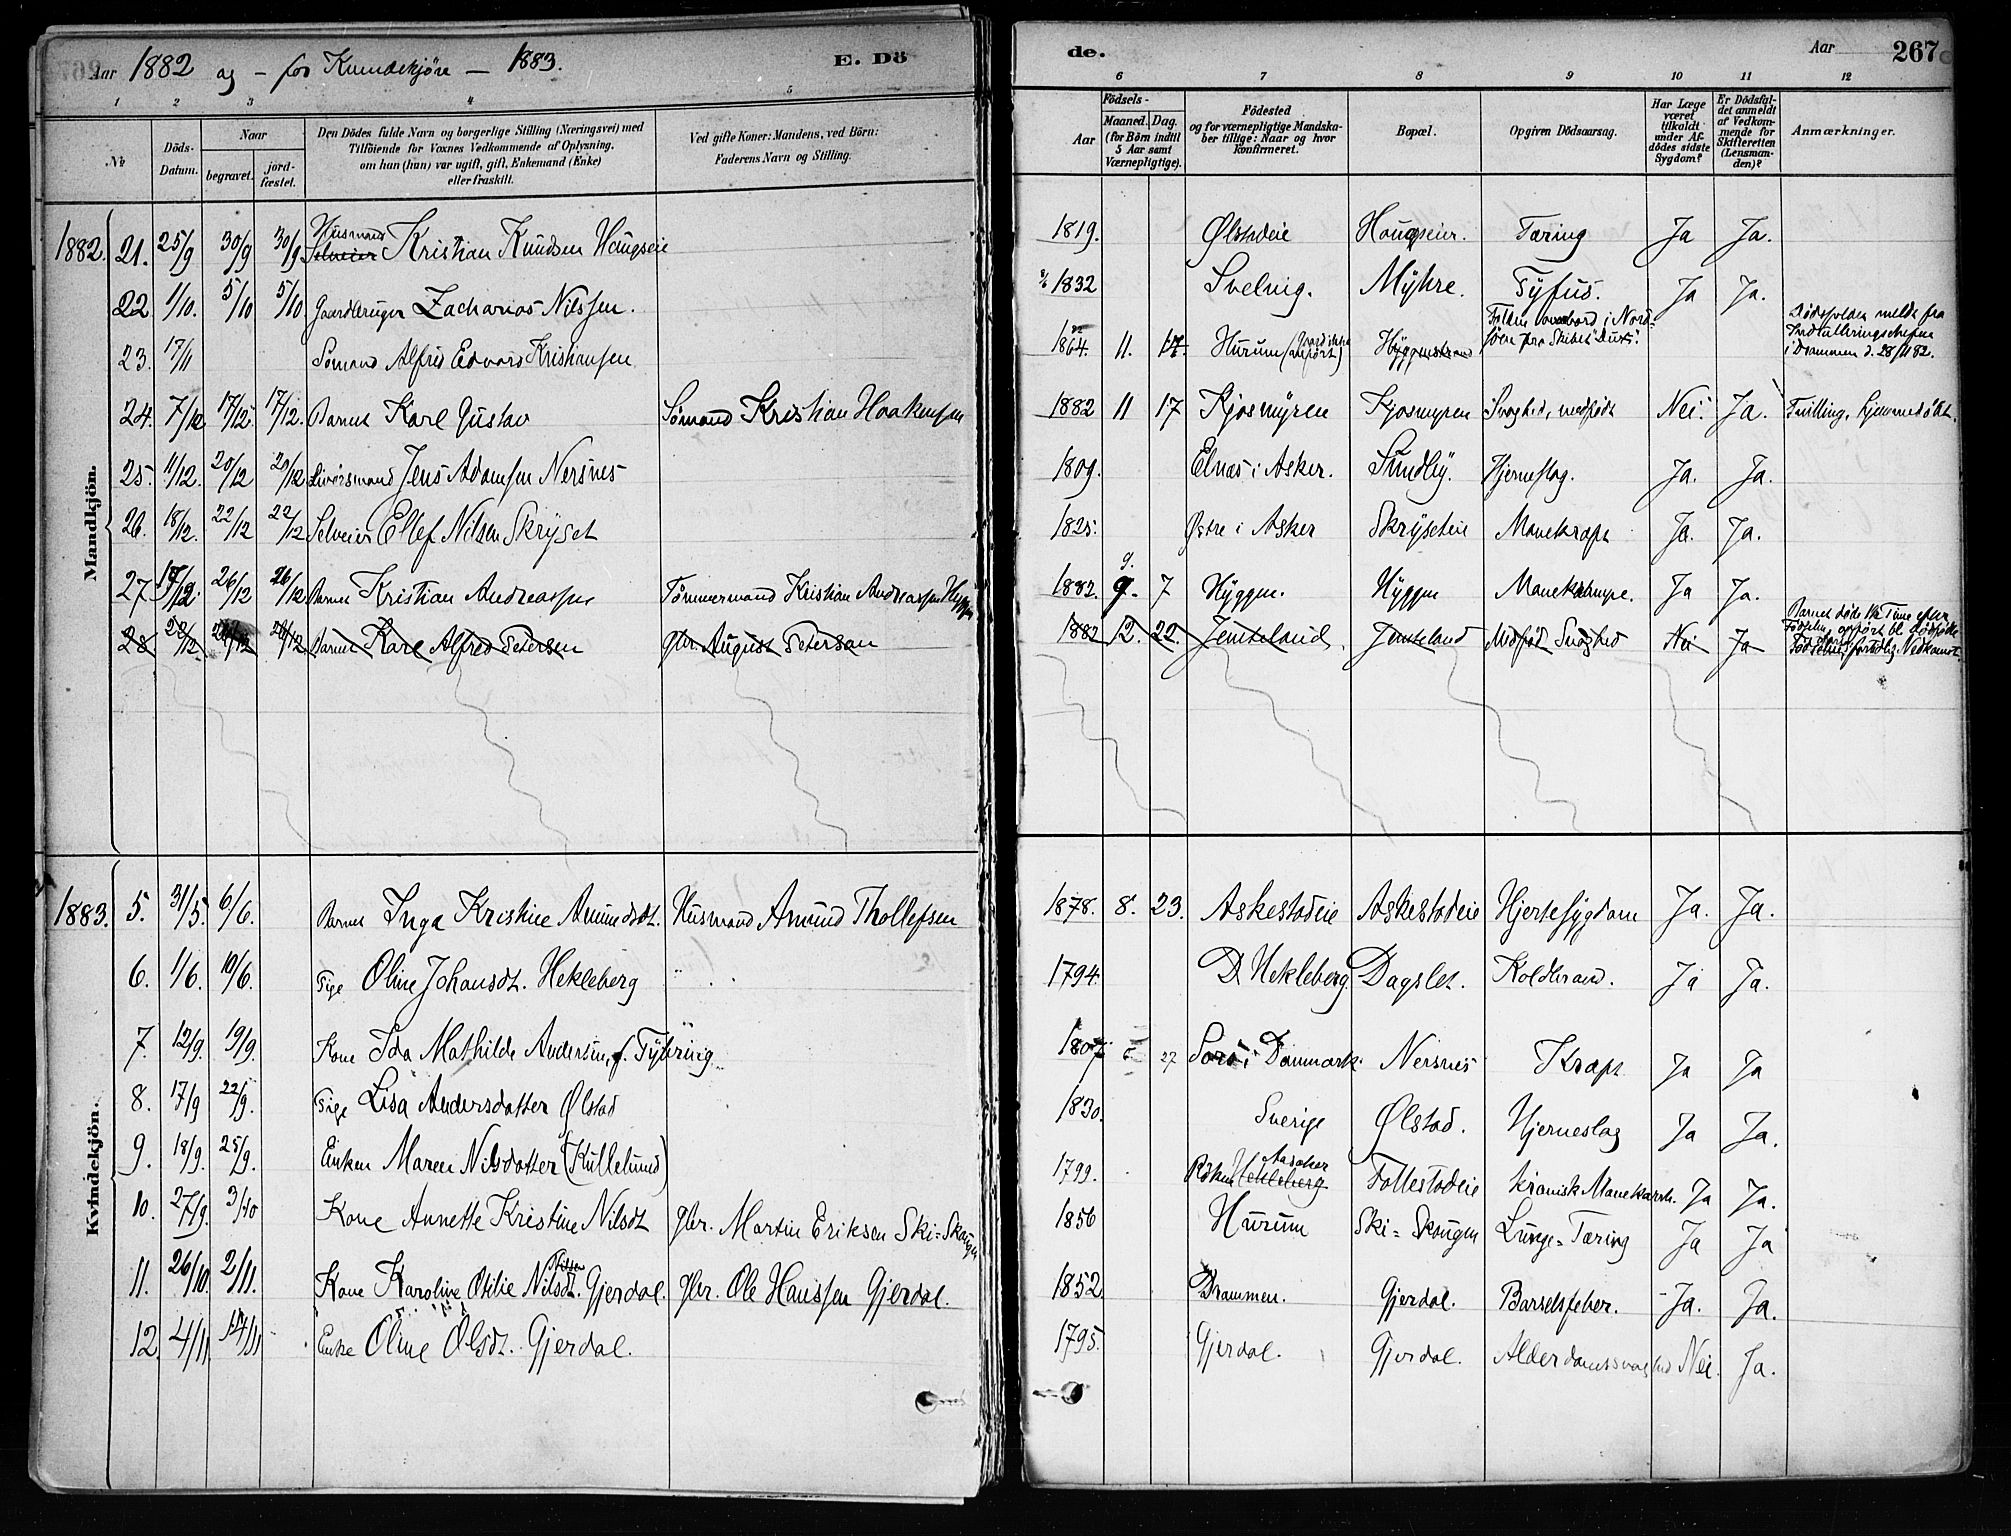 Aar 1882 og - for Kvindekjøn - 1883. E. Dö
de. Aar 267
1 2 3 4 5 6 7 8 9 10 11 12
№ Döds-Datum. Naar begravet. jord-fæstet. Den Dödes fulde Navn og borgerlige Stilling (Næringsvei) med Tilföiende for Voxnes Vedkommende af Oplysning, om han (hun) var ugift, gift, Enkemand (Enke) eller fraskilt. Ved gifte Koner: Mandens, ved Börn: Faderens Navn og Stilling.
Födsels- Aar Maaned. Dag. (for Börn indtil 5 Aar samt Værnepligtige). Födested og for værnepligtige Mandskaber tillige: Naar og hvor konfirmeret. Bopæl. Opgiven Dödsaarsag. Har Læge været tilkaldt under Afdödes sidste Sygdom? Er Dödsfaldet anmeldt af Vedkommende for Skifteretten (Lensmanden)? Anmærkninger.
Mandkjön.
1882. 21. 25/9 30/9 30/9 Husmand Selveier Kristian Knudsen Haugseie 1819. Ølstadeie Haugseier. Tæring Ja Ja.
22 1/10. 5/10 5/10 Gaardbruger Zacharias Nilssen. 1832 Svelvig. Myhre. Tyfus. Ja Ja.
23. 17/11 Sømand Alfred Edvard Kristiansen 1864. 11. 17. Hurum Hyggenstrand Falden overbord i Nordsjøen fra Skibet Dødsfaldet meldt fra Indrulleringschefen i Drammen d. 28/11 82.
24. 7/12 17/12 17/12. Barnet Karl Gustav Sømand Kristian Haakensen 1882 11 17 Kjosmyren Kjosmyren Svaghed, medfødt Nei. Ja. Tvilling, hjemmedøbt.
25. 11/12. 20/12 20/12 Livørsmand Jens Adamsen Nersnes 1809. Elnæs i Asker. Sundby. Hjerneslag. Ja. Ja.
26. 18/12. 22/12 22/12 Selveier Ellef Nilsen Skryset 1825. Østre i Asker Skryseteie Mavekræft Ja. Ja.
27 19/12. 26/12 26/12. Barnet Kristian Andreassen Tømmermand Kristian Andreassen Hyggen 1882. 9. 7 Hyggen. Hyggen Mavekrampe. Ja Ja.
28. 22/12. 26/12 26/12. Barnet Karl Alfred Petersen gbr. August Petersen 1882 12. 22. Jemteland. Jemteland Medfødt Svaghed Nei Ja Barnet døde ½ Time efter Fødselen, opført bl. dødfødte
Kvindekjön.
1883. 5. 31/5. 6/6. Barnet Inga Kristine Amundsdt. Husmand Amund Thollefsen 1878. 8. 23. Askestadeie Askestadeie Hjertesygdom Ja. Ja.
6. 1/6. 10/6. Pige Oline Johansdt. Hekleberg 1794. D. Hekleberg Dagslet. Koldbrand. Ja Ja.
7. 12/9. 19/9. Kone Ida Mathilde Andersen, f. Tybring 1807 27 Sorø i Danmark. Nersnes Kræft Ja Ja
8. 17/9 22/9. Pige Lisa Andersdatter Ølstad 1830. Sverige Ølstad. Hjerneslag Ja Ja.
9. 18/9. 25/9. Enken Maren Nilsdatter (Kullelund) 1799. Røken Hekleberg Follestadeie kronisk Mavekatarrh. Ja Ja.
10. 27/9. 3/10 Kone Annette Kristine Nilsdt gbr. Martin Eriksen Ski-Skougen 1856 Hurum Ski-Skougen Lunge-Tæring Ja Ja
11. 26/10. 2/11. Kone Karoline Otilie Nilsdt. Gjerdal. gbr. Ole Hanssen Gjerdal. 1852. Drammen. Gjerdal. Barselsfeber. Ja. Ja.
12. 4/11 14/11 Enke Oline Olsdt. Gjerdal. 1795. Gjerdal. Gjerdal. Alderdomssvaghed Nei. Ja.